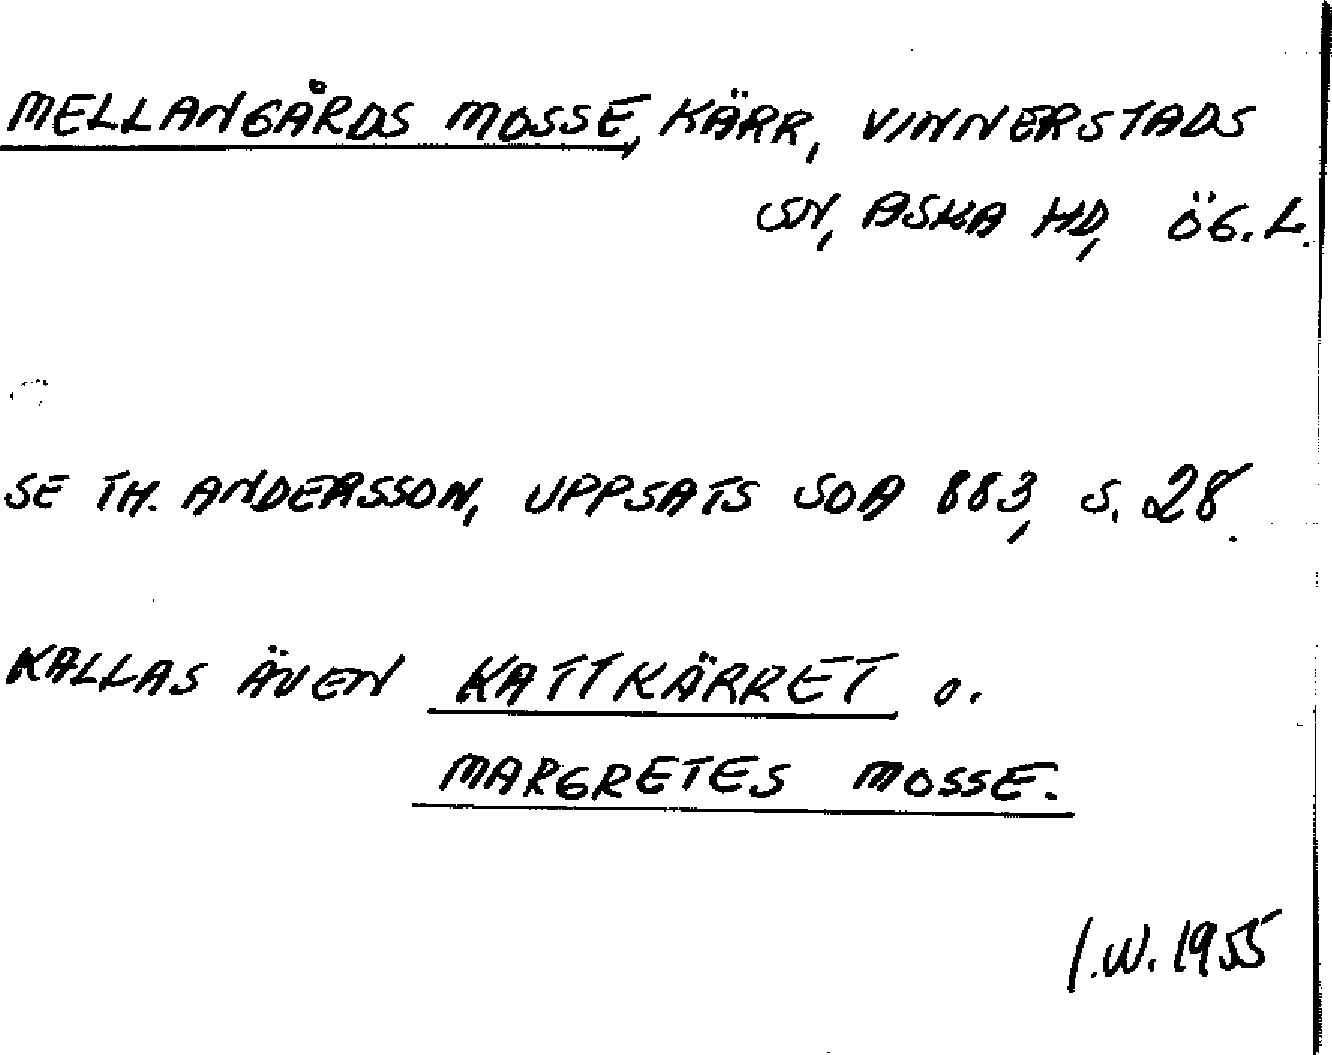 MELLANGÅRDS MOSSE, KÄRR, VINNERSTADS
SN, ASKA HD, ÖG.L.
SE TH. ANDERSSON, UPPSATS SOA 883, S. 28.
KALLAS ÄVEN KATTKÄRRET o.
MARGRETES MOSSE.
I.W. 1955